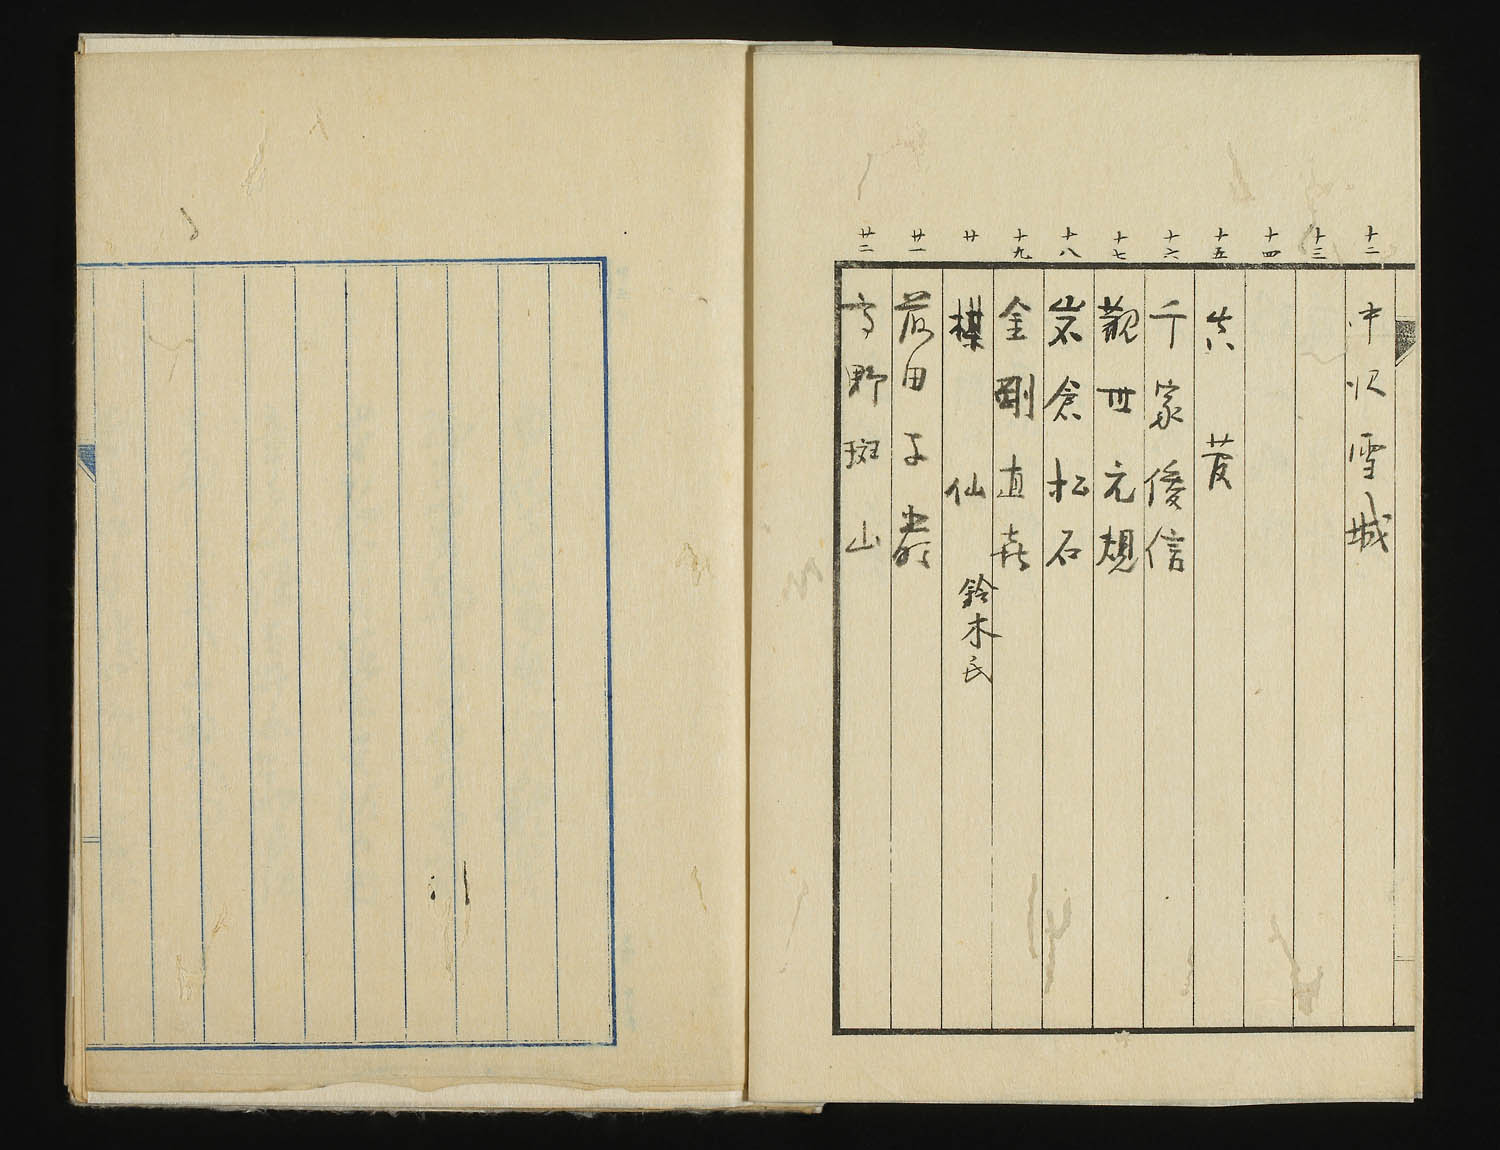 十二 中沢雪城
十三
十四
十五 芳
十六 千家俊信
十七 觀世元規
十八 岩倉松石
十九 金剛直喜
廿 棋仙 鈴木氏
廿一 前田子爵
廿二 高野斑山